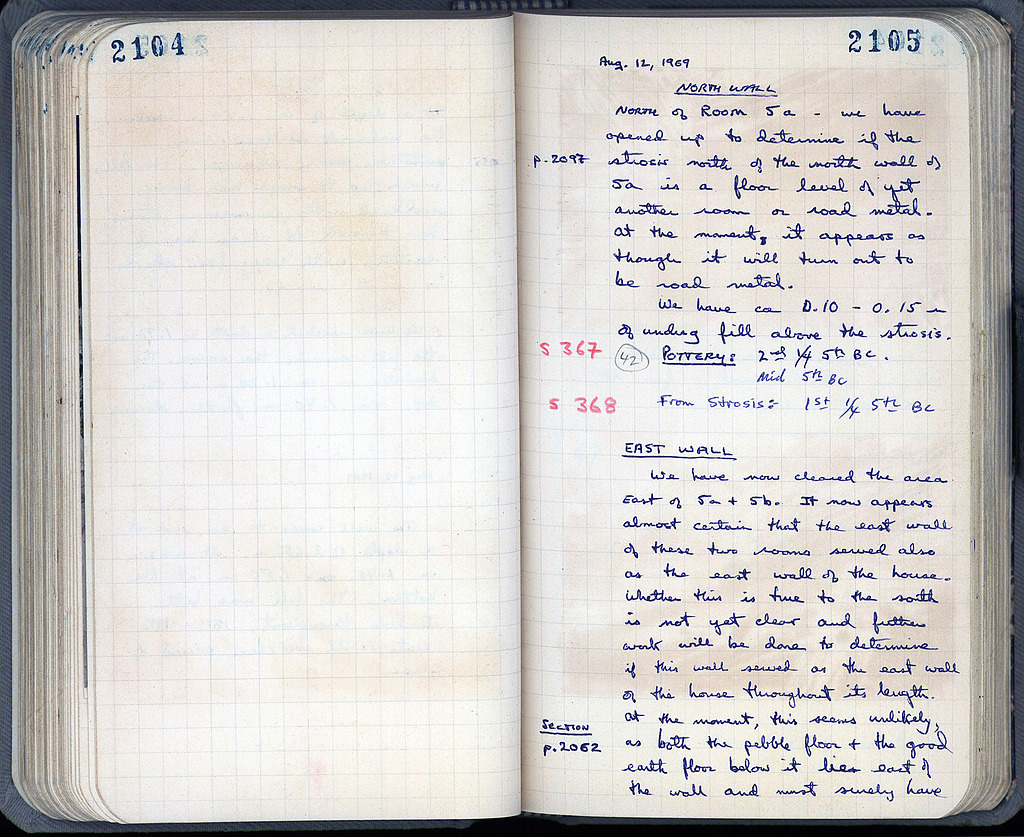 2104
2105
Aug. 12, 1969
NORTH WALL
NORTH of ROOM 5a - we have
opened up to determine if the
p. 2097 strosis north of the north wall of
5a is a floor level of yet
another room or road metal.
At the moment, it appears as
though it will turn out to
be road metal.
We have ca 0.10 - 0.15 m
of undug fill above the strosis.
S 367 42 POTTERY: 2nd 1/4 5th BC.
Mid 5th BC
S 368 From Strosis: 1st 1/4 5th BC
EAST WALL
We have now cleared the area
East of 5a + 5b. It now appears
almost certain that the east wall
of these two rooms served also
as the east wall of the house.
Whether this is true to the south
is not yet clear and further
work will be done to determine
if this wall served as the east wall
of the house throughout its length.
At the moment, this seems unlikely,
SECTION
p. 2062 as both the pebble floor + the good
earth floor below it lies east of
the wall and must surely have